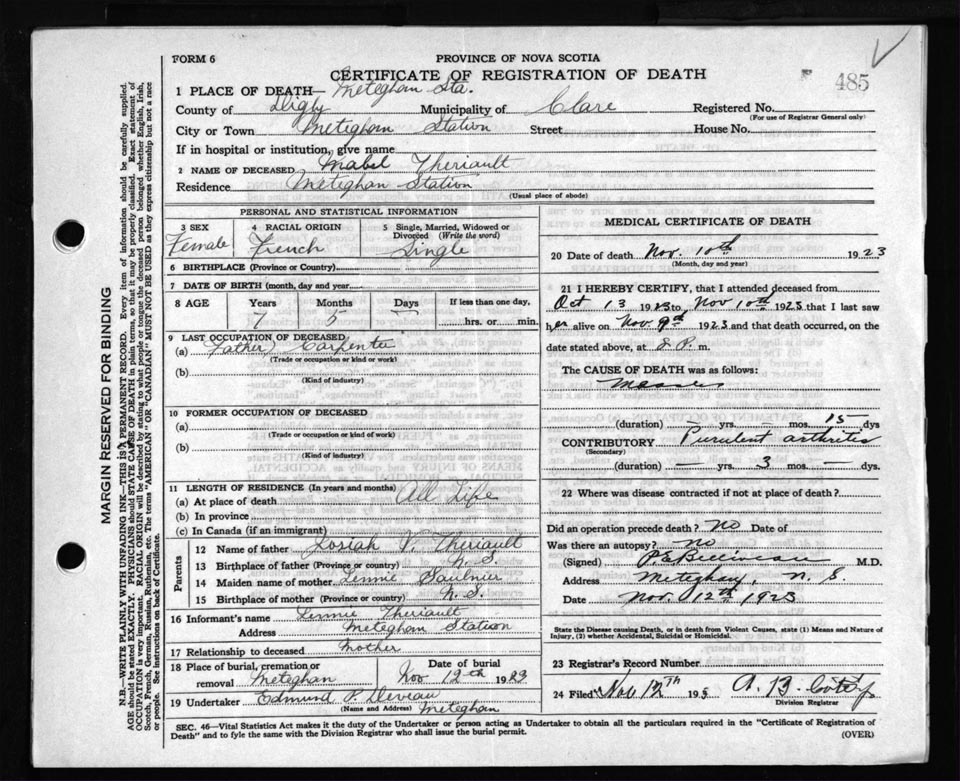 FORM 6
PROVINCE OF NOVA SCOTIA
CERTIFICATE OF REGISTRATION OF DEATH
485
1 PLACE OF DEATH— Meteghan Sta.
County of Digby Municipality of Clare Registered No.
(For use of Registrar General only)
City or Town Meteghan Station Street House No.
If in hospital or institution, give name
2 NAME OF DECEASED Mabel Theriault
Residence Meteghan Station
(Usual place of abode)
PERSONAL AND STATISTICAL INFORMATION
3 SEX 4 RACIAL ORIGIN 5 Single, Married, Widowed or Divorced (Write the word)
Female French Single
6 BIRTHPLACE (Province or Country)
7 DATE OF BIRTH (month, day and year)
8 AGE Years Months Days If less than one day,
7 5 — hrs. or min.
9 LAST OCCUPATION OF DECEASED
(a) Father Carpenter
(Trade or occupation or kind or work)
(b)
(Kind of industry)
10 FORMER OCCUPATION OF DECEASED
(a)
(Trade or occupation or kind of work)
(b)
(Kind of industry)
11 LENGTH OF RESIDENCE (In years and months)
(a) At place of death All Life
(b) In province
(c) In Canada (if an immigrant)
Parents
12 Name of father Josiah V. Theriault
13 Birthplace of father (Province or country) N. S.
14 Maiden name of mother Lennie Saulnier
15 Birthplace of mother (Province or country) N. S.
16 Informant's name Lennie Theriault
Address Meteghan Station
17 Relationship to deceased Mother
18 Place of burial, cremation or removal Meteghan Date of burial Nov 12th 1923
19 Undertaker Edmund P. Deveau
(Name and Address) Meteghan
MEDICAL CERTIFICATE OF DEATH
20 Date of death Nov. 10th 1923
(Month, day and year)
21 I HEREBY CERTIFY, that I attended deceased from
Oct 13 1923 to Nov 10th 1923 that I last saw
her alive on Nov 9th 1923 and that death occurred, on the
date stated above, at 8 P. m.
The CAUSE OF DEATH was as follows:
Measles
(duration) — yrs. — mos. 15 — dys.
CONTRIBUTORY Purulent arthritis
(Secondary)
(duration) — yrs. 3 mos. — dys.
22 Where was disease contracted if not at place of death?
Did an operation precede death? No Date of
Was there an autopsy? No
(Signed) P.E. Belliveau M.D.
Address Meteghan, N. S.
Date Nov. 12th 1923
State the Disease causing Death, or in death from Violent Causes, state (1) Means and Nature of
Injury, (2) whether Accidental, Suicidal or Homicidal.
23 Registrar's Record Number
24 Filed Nov 12th 193 A. B.
Division Registrar
SEC. 46—Vital Statistics Act makes it the duty of the Undertaker or person acting as Undertaker to obtain all the particulars required in the "Certificate of Registration of
Death" and to fyle the same with the Division Registrar who shall issue the burial permit.
(OVER)
MARGIN RESERVED FOR BINDING
N.B.—WRITE PLAINLY WITH UNFADING INK—THIS IS A PERMANENT RECORD. Every item of information should be carefully supplied.
AGE should be stated EXACTLY. PHYSICIANS should STATE CAUSE OF DEATH in plain terms, so that it may be properly classified. Exact statement of
OCCUPATION is very important. RACIAL ORIGIN will be described by stating to what people or tongue the deceased person belonged whether English, Irish,
Scotch, French, German, Russian, Ruthenian, etc. The terms "AMERICAN" OR "CANADIAN" MUST NOT BE USED as they express citizenship but not a race
or people. See instructions on back of Certificate.